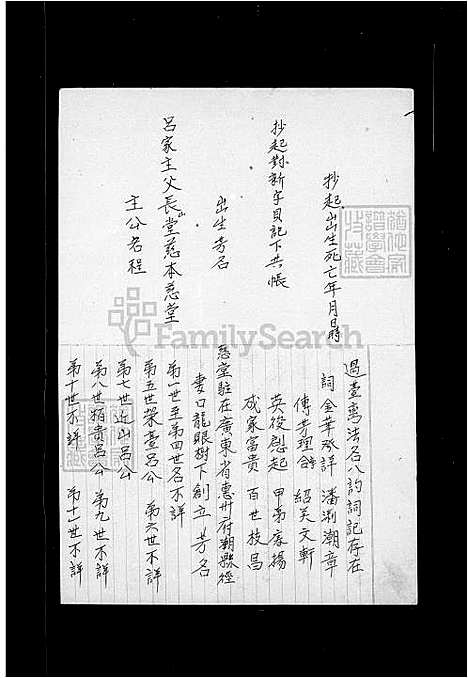 抄起出生死亡年月日時
抄起對新字貝記下共帳
出生芳名
呂家主父長堂慈本慈堂
主公名程
過臺寓法名八韵詞記存在
詞金華承詳 潘渕潮章
傳芳理 紹美文軒
英俊慰起 甲第廣揚
成家富貴 百世枝昌
慈堂駐在廣東省惠卅府潮縣徑
妻口龍眼樹下創立芳名
第一世至第四世名不詳
第五世榮臺呂公 第六世不詳
第七世近山呂公
第八世栢貴呂公 第九世不詳
第十世不詳 第十一世不詳
FamilySearch